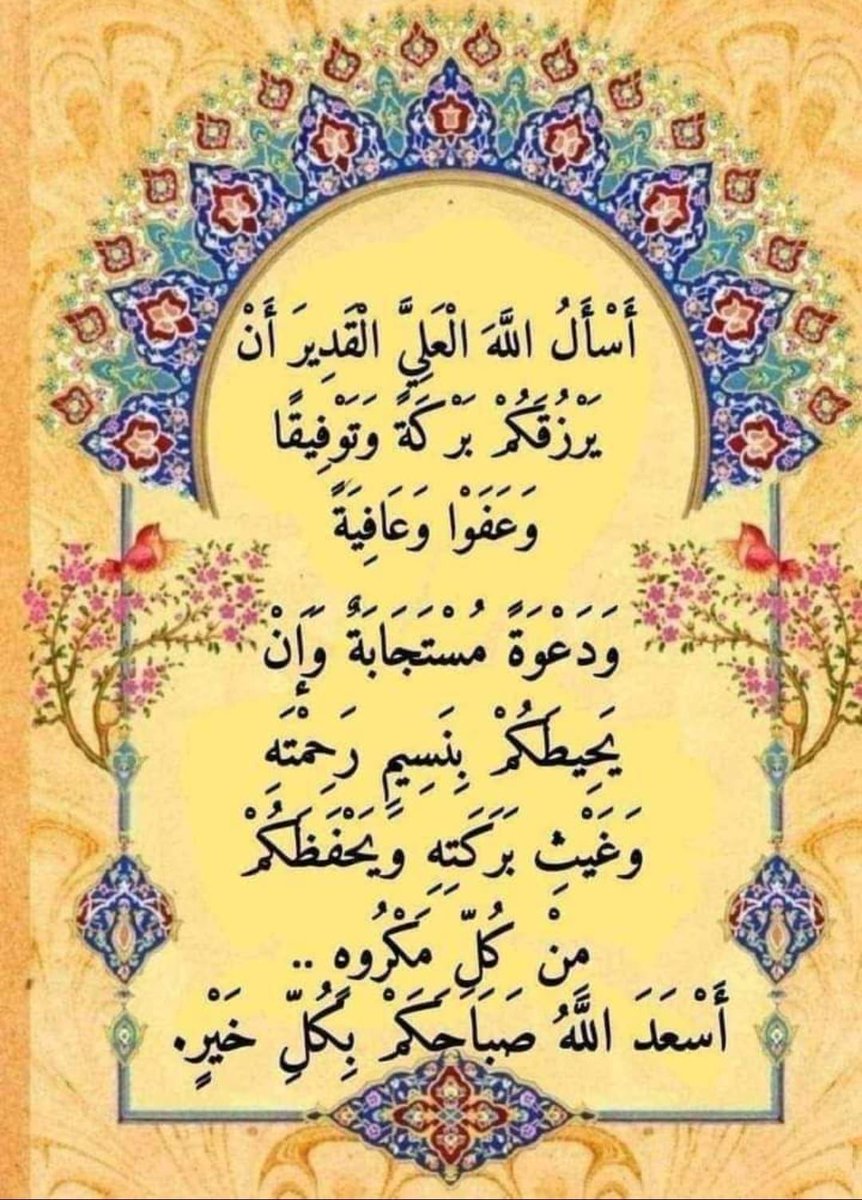 أَسْأَلُ اللَّهَ الْعَلِيَّ الْقَدِيرَ أَنْ
يَرْزُقَكُمْ بَرْكَةً وَتَوْفِيقًا
وَعَفَوْا وَعَافِيَةً
وَدَعْوَةً مُسْتَجَابَةٌ وَإِنْ
يَحِيطَكُمْ بِنَسِيمِ رَحِمْتَهِ
وَغَيْثِ بَرَكَتِهِ وَيَحْفَظَكُمْ
مِنْ كُلِّ مَكْرُوهِ ..
أَسْعَدَ اللَّهُ صَبَاحَكَمْ بِكُلِّ خَيْرٍ.